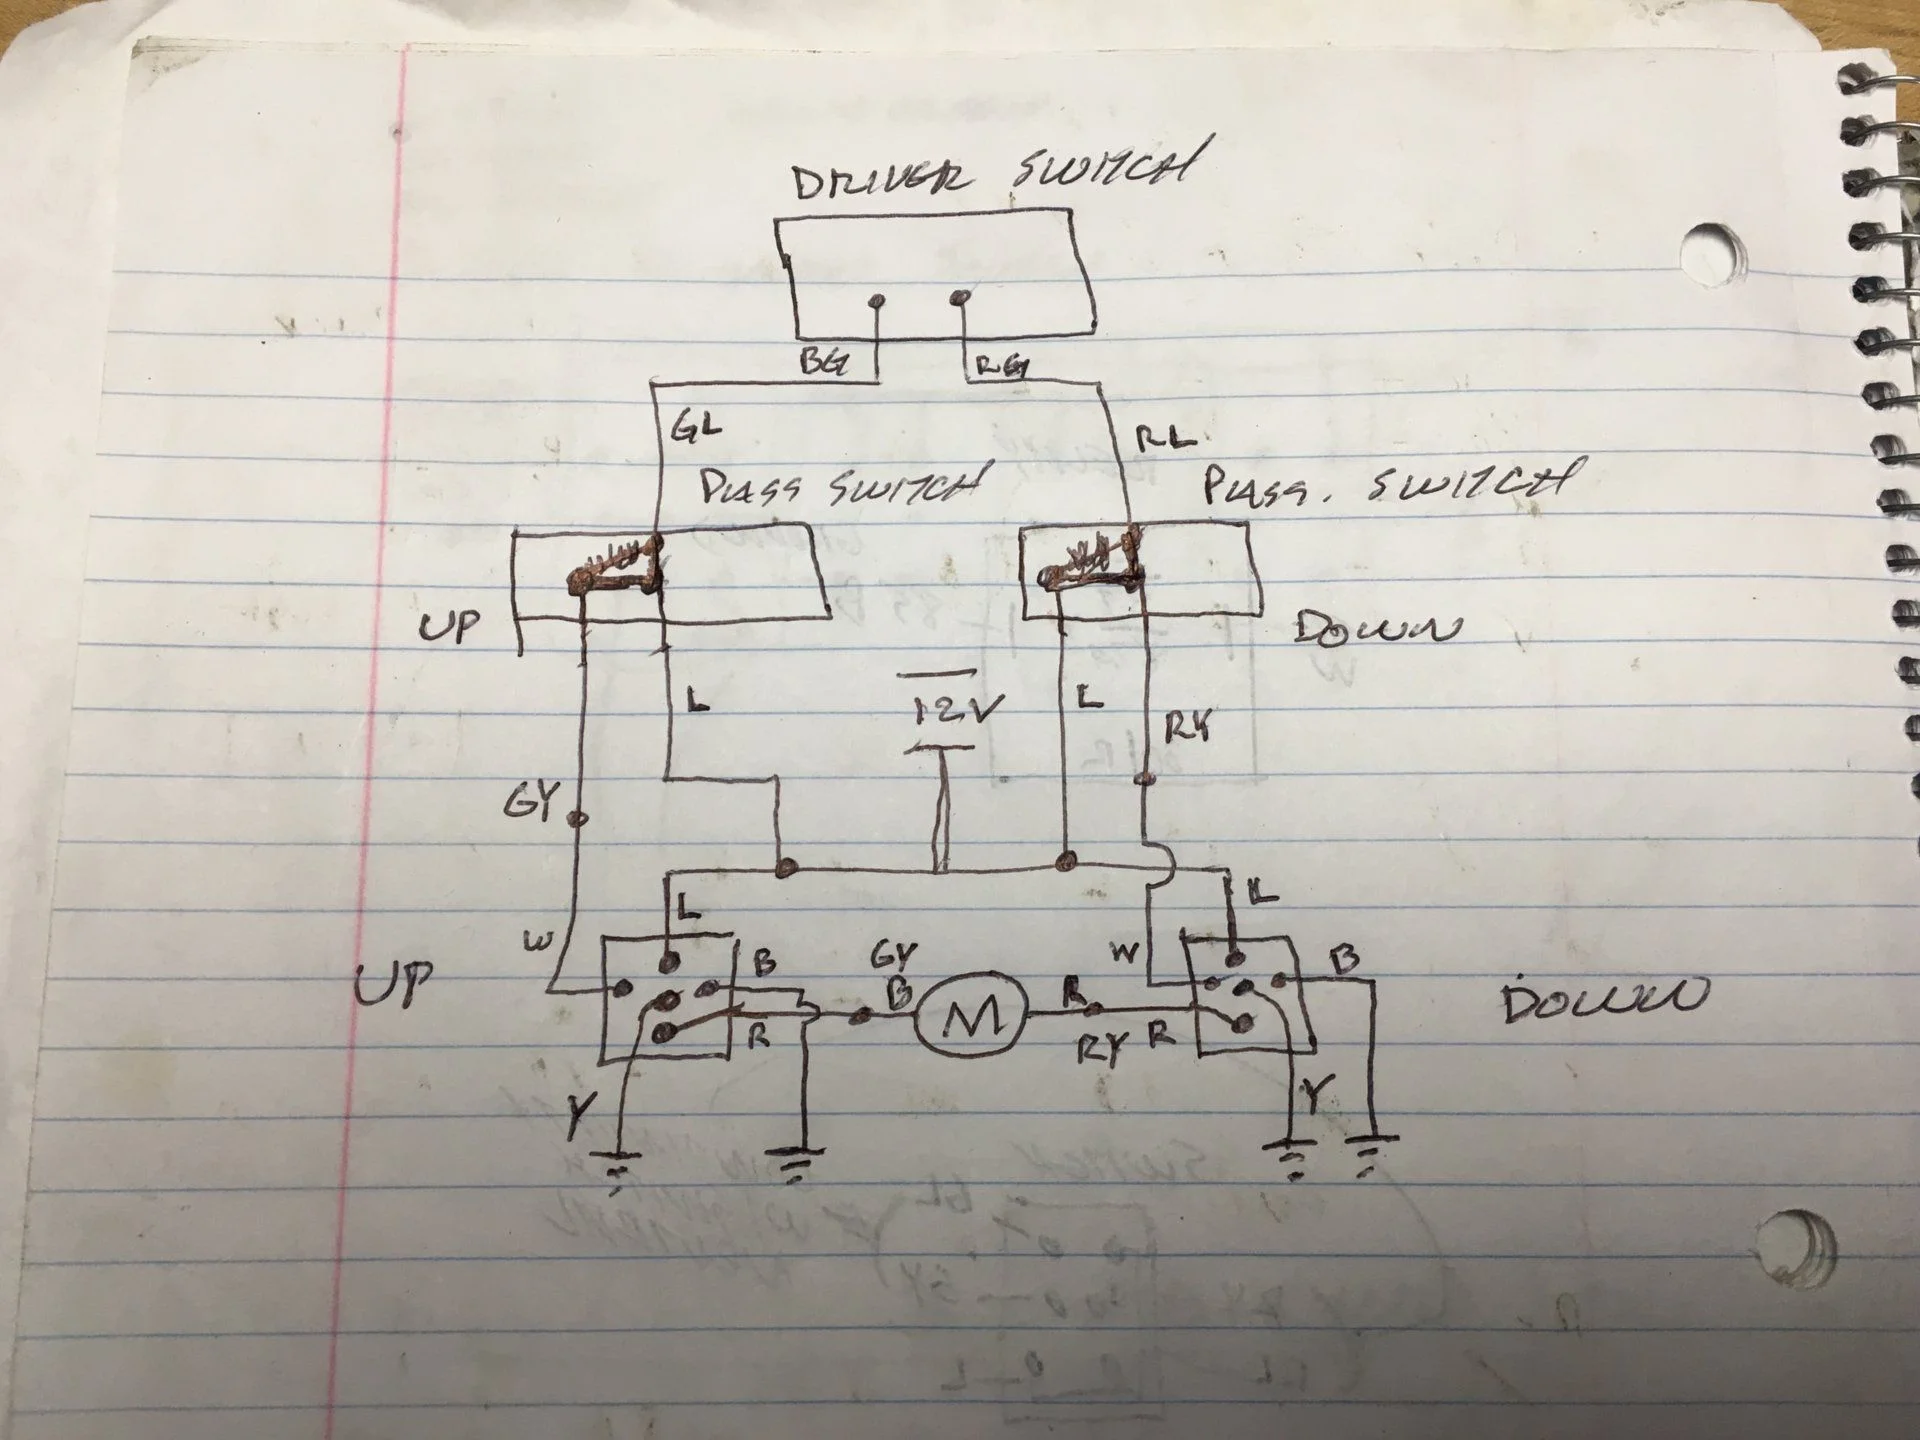 DRIVER SWITCH
BG RG
GL RL
PASS SWITCH PASS. SWITCH
UP DOWN
12V
L L
RY
GY
L L
W B GY W B
UP B M R DOWN
R RY R
Y Y